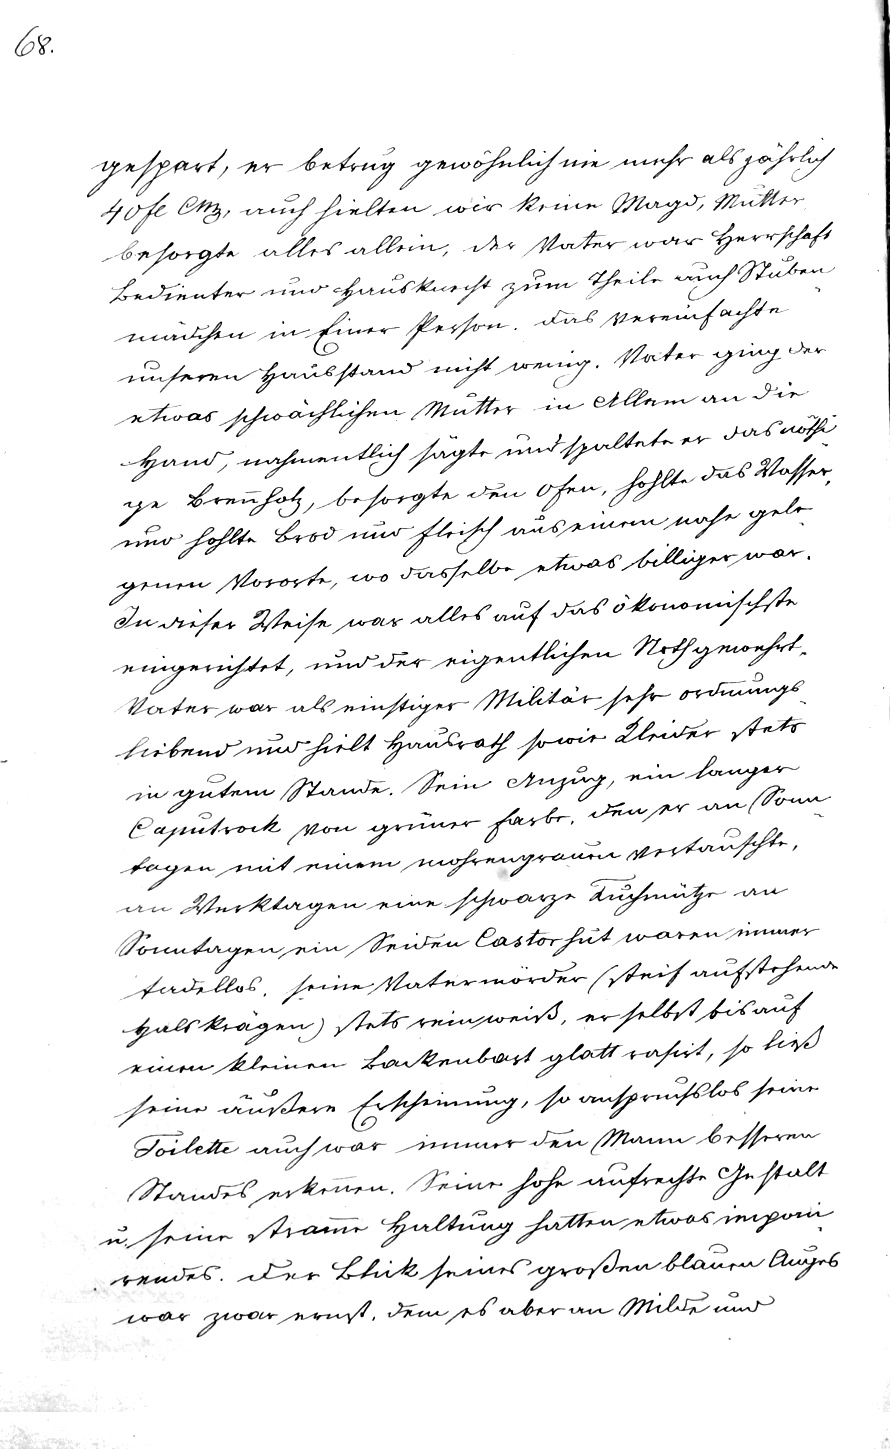 68.
gespart, er betrug gewöhnlich nie mehr als jährlich
40 fl CMz, auch hielten wir keine Magd, Mutter
besorgte alles allein, der Vater war Herrschaft
Bedienter und Hausknecht zum Theile auch Stuben
mädchen in Einer Person. das vereinfachte
unseren Hausstand nicht wenig. Vater ging der
etwas schwächlichen Mutter in Allem an die
Hand, nahmentlich sägte und spaltete er das nöthi
ge Brennholz, besorgte den Ofen, hohlte das Wasser,
und hohlte Brod und Fleisch aus einem nahe gele
genen Vororte, wo dasselbe etwas billiger war.
In dieser Weise war alles auf das ökonomischste
eingerichtet, und der eigentlichen Noth gewehrt.
Vater war als einstiger Militär sehr ordnungs
liebend und hielt Hausrath sowie Kleider stets
in gutem Stande. Sein Anzug, ein langer
Caputrock von grüner Farbe, den er an Sonn
tagen mit einem mohrengrauen vertauschte,
an Werktagen eine schwarze Tuchmütze an
Sonntagen ein Seiden Castorhut waren immer
tadellos, seine Vatermörder (steif aufstehende
Halskrägen) stets rein weiß, er selbst bis auf
einen kleinen Backenbart glatt rasirt, so ließ
seine äußere Erscheinung, so anspruchslos seine
Toilette auch war immer den Mann besseren
Standes erkennen. Seine hohe aufrechte Gestalt
u. seine stramme Haltung hatten etwas imponi
rendes. der Blick seines großen blauen Auges
war zwar ernst, dem es aber an Milde und